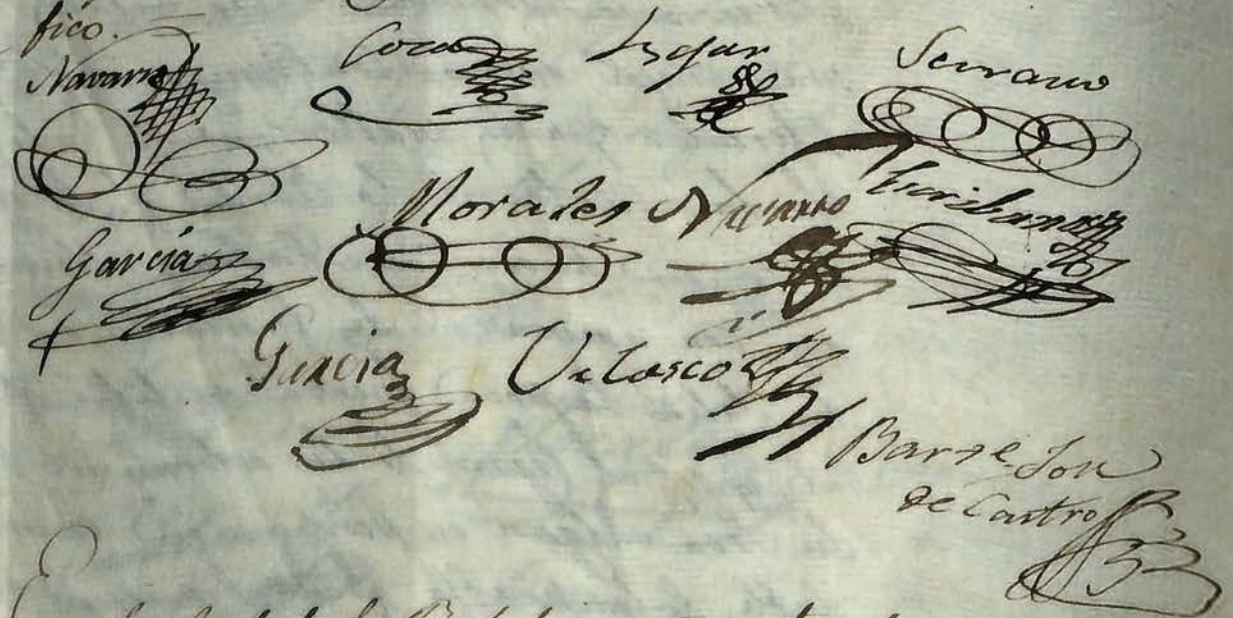 fico.
Navarro Coca Lugar Serrano
Morales Navarro Escribano
García
Garcia Velasco
Barme. Jose
de Castro